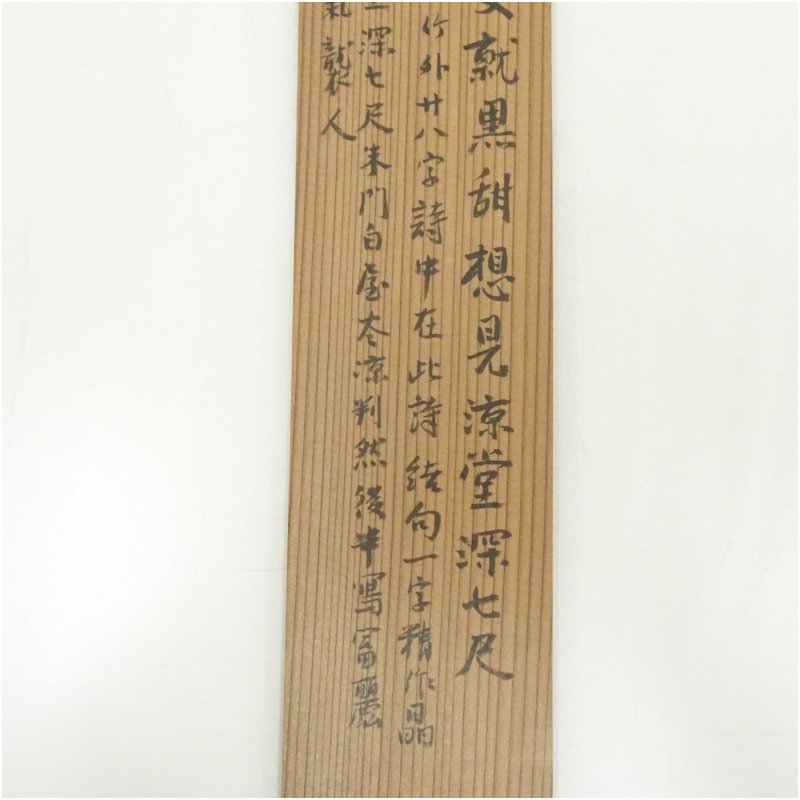 就黒甜想見涼堂深七尺
竹外廿八字詩中在此詩結句一字精作晶
深七尺朱門白屋冬涼判然後半寫富麗
氣襲人